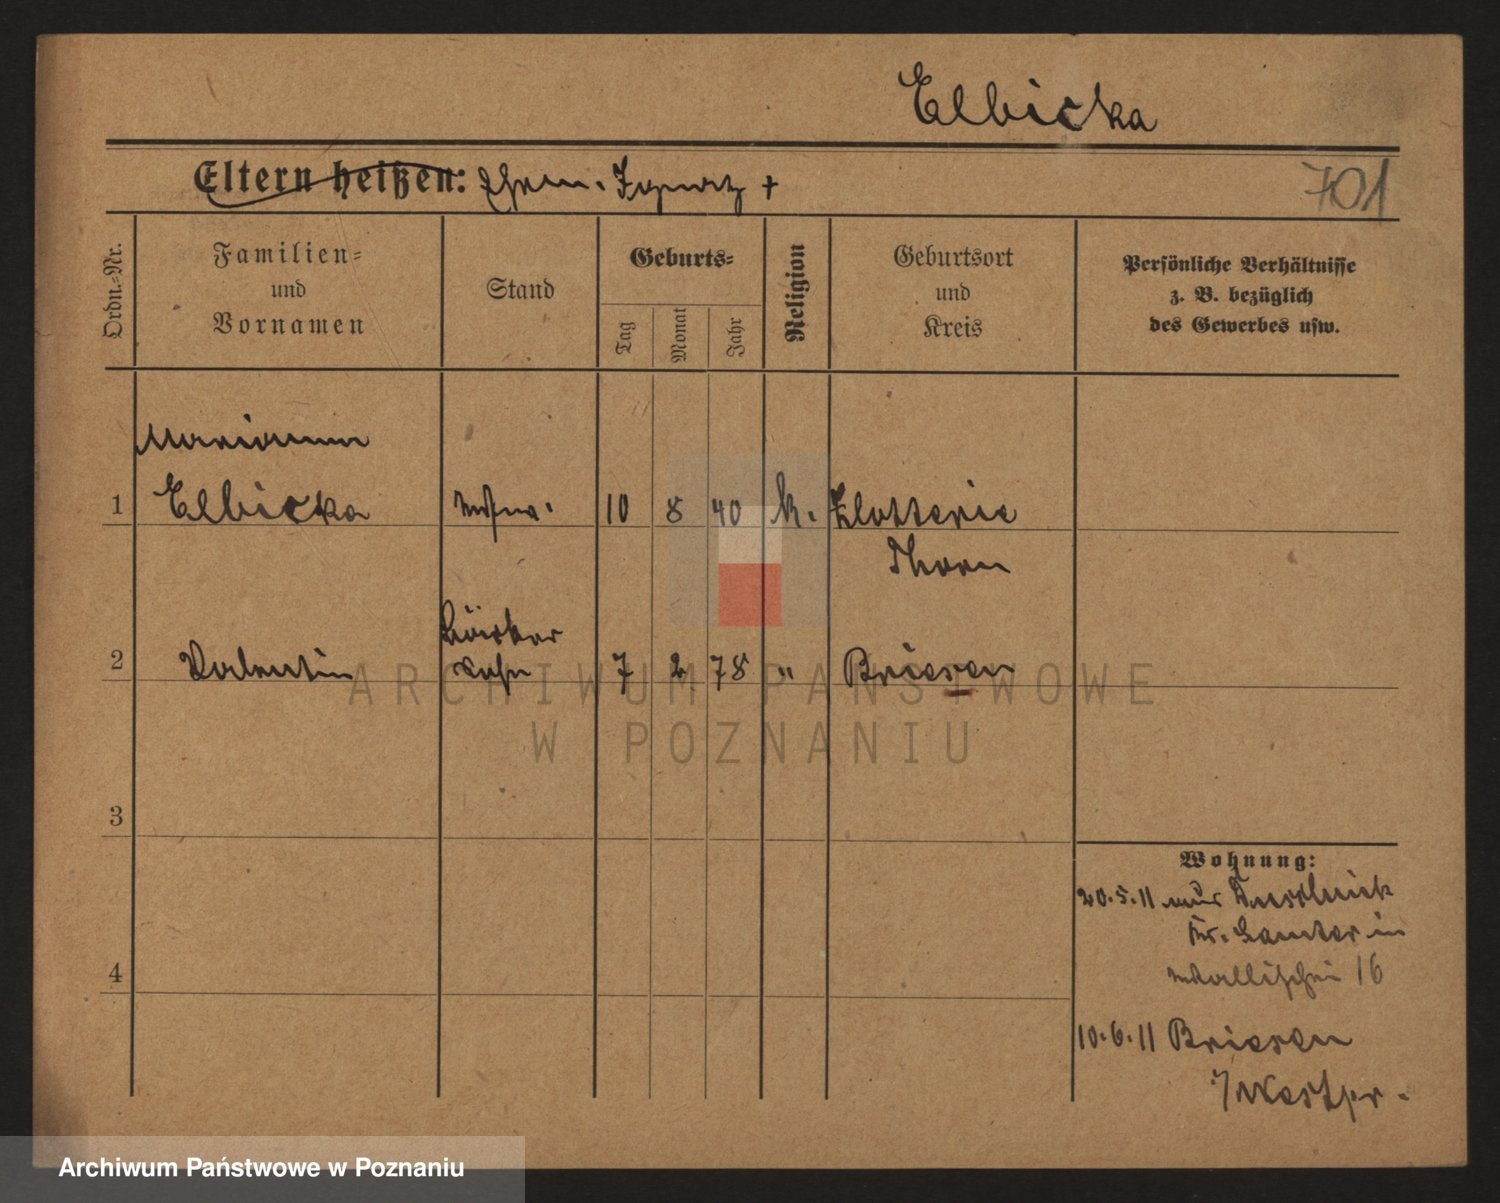 Elbicka
Eltern heißen: Ehem. Ignatz +
701
Ordn.-Nr.
Familien-
und
Vornamen
Stand
Geburts-
Tag
Monat
Jahr
Religion
Geburtsort
und
Kreis
Persönliche Verhältnisse
z. B. bezüglich
des Gewerbes usw.
Marianna
1 Elbicka Wwe. 10 8 40 k. Zlotterie
Thorn
2 Valentin Sohn 7 2 78 " Briesen
3
4
Wohnung:
20.5.11 aus
in
Wallischei 16
10.6.11 Briesen
Westpr.
ARCHIWUM PAŃSTWOWE
W POZNANIU
Archiwum Państwowe w Poznaniu